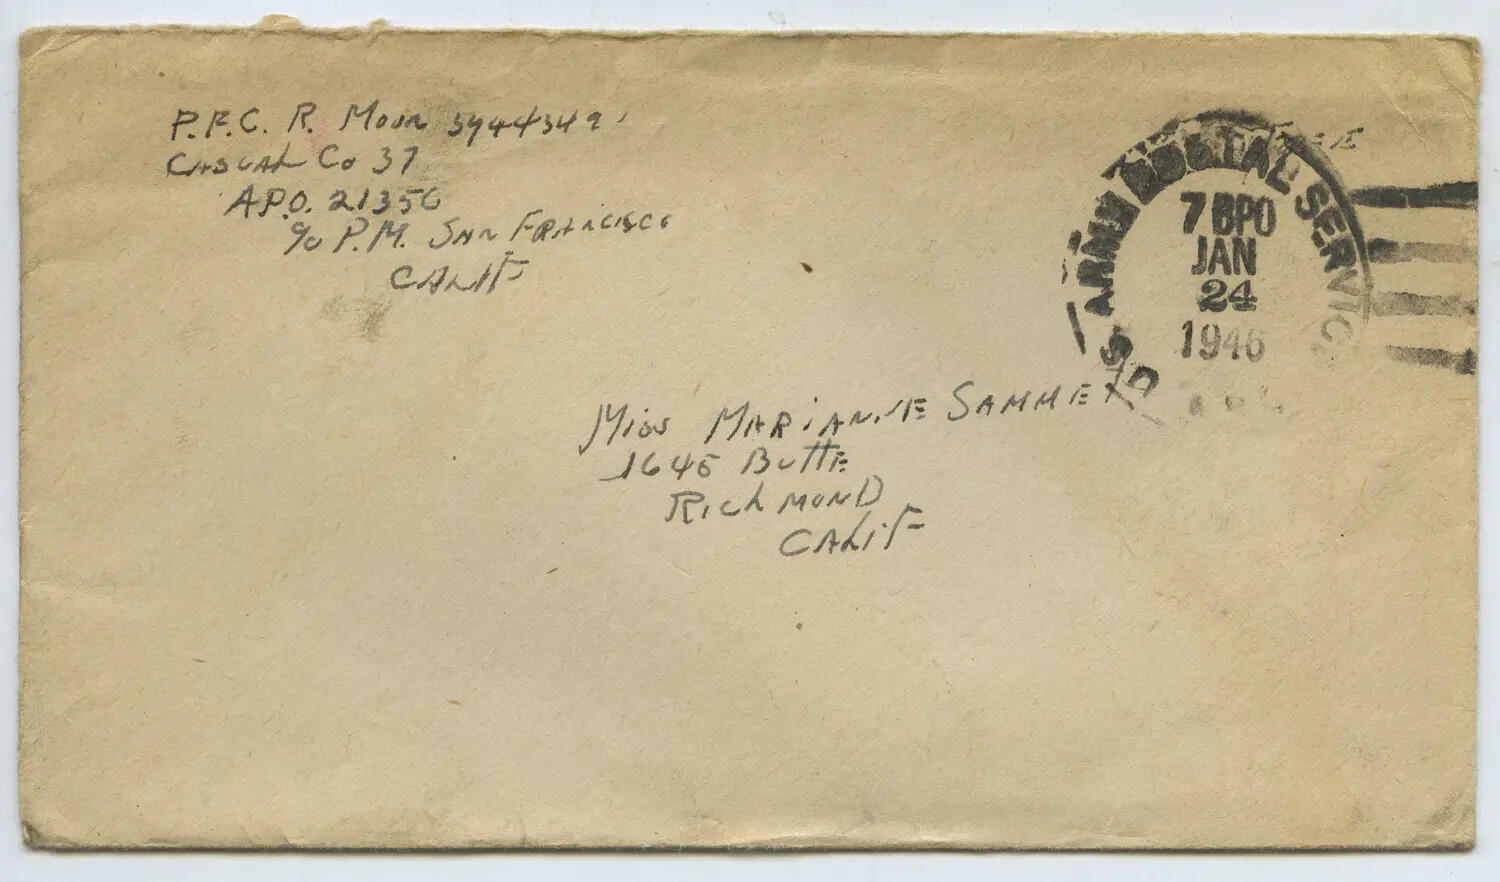 P.F.C. R. Moon 39443492
Casual Co 37
A.P.O. 21350
c/o P.M. San Francisco
Calif
Free
U.S. ARMY POSTAL SERVICE
7 BPO
JAN
24
1946
Miss Marianne Sammet
1645 Butte
Richmond
Calif